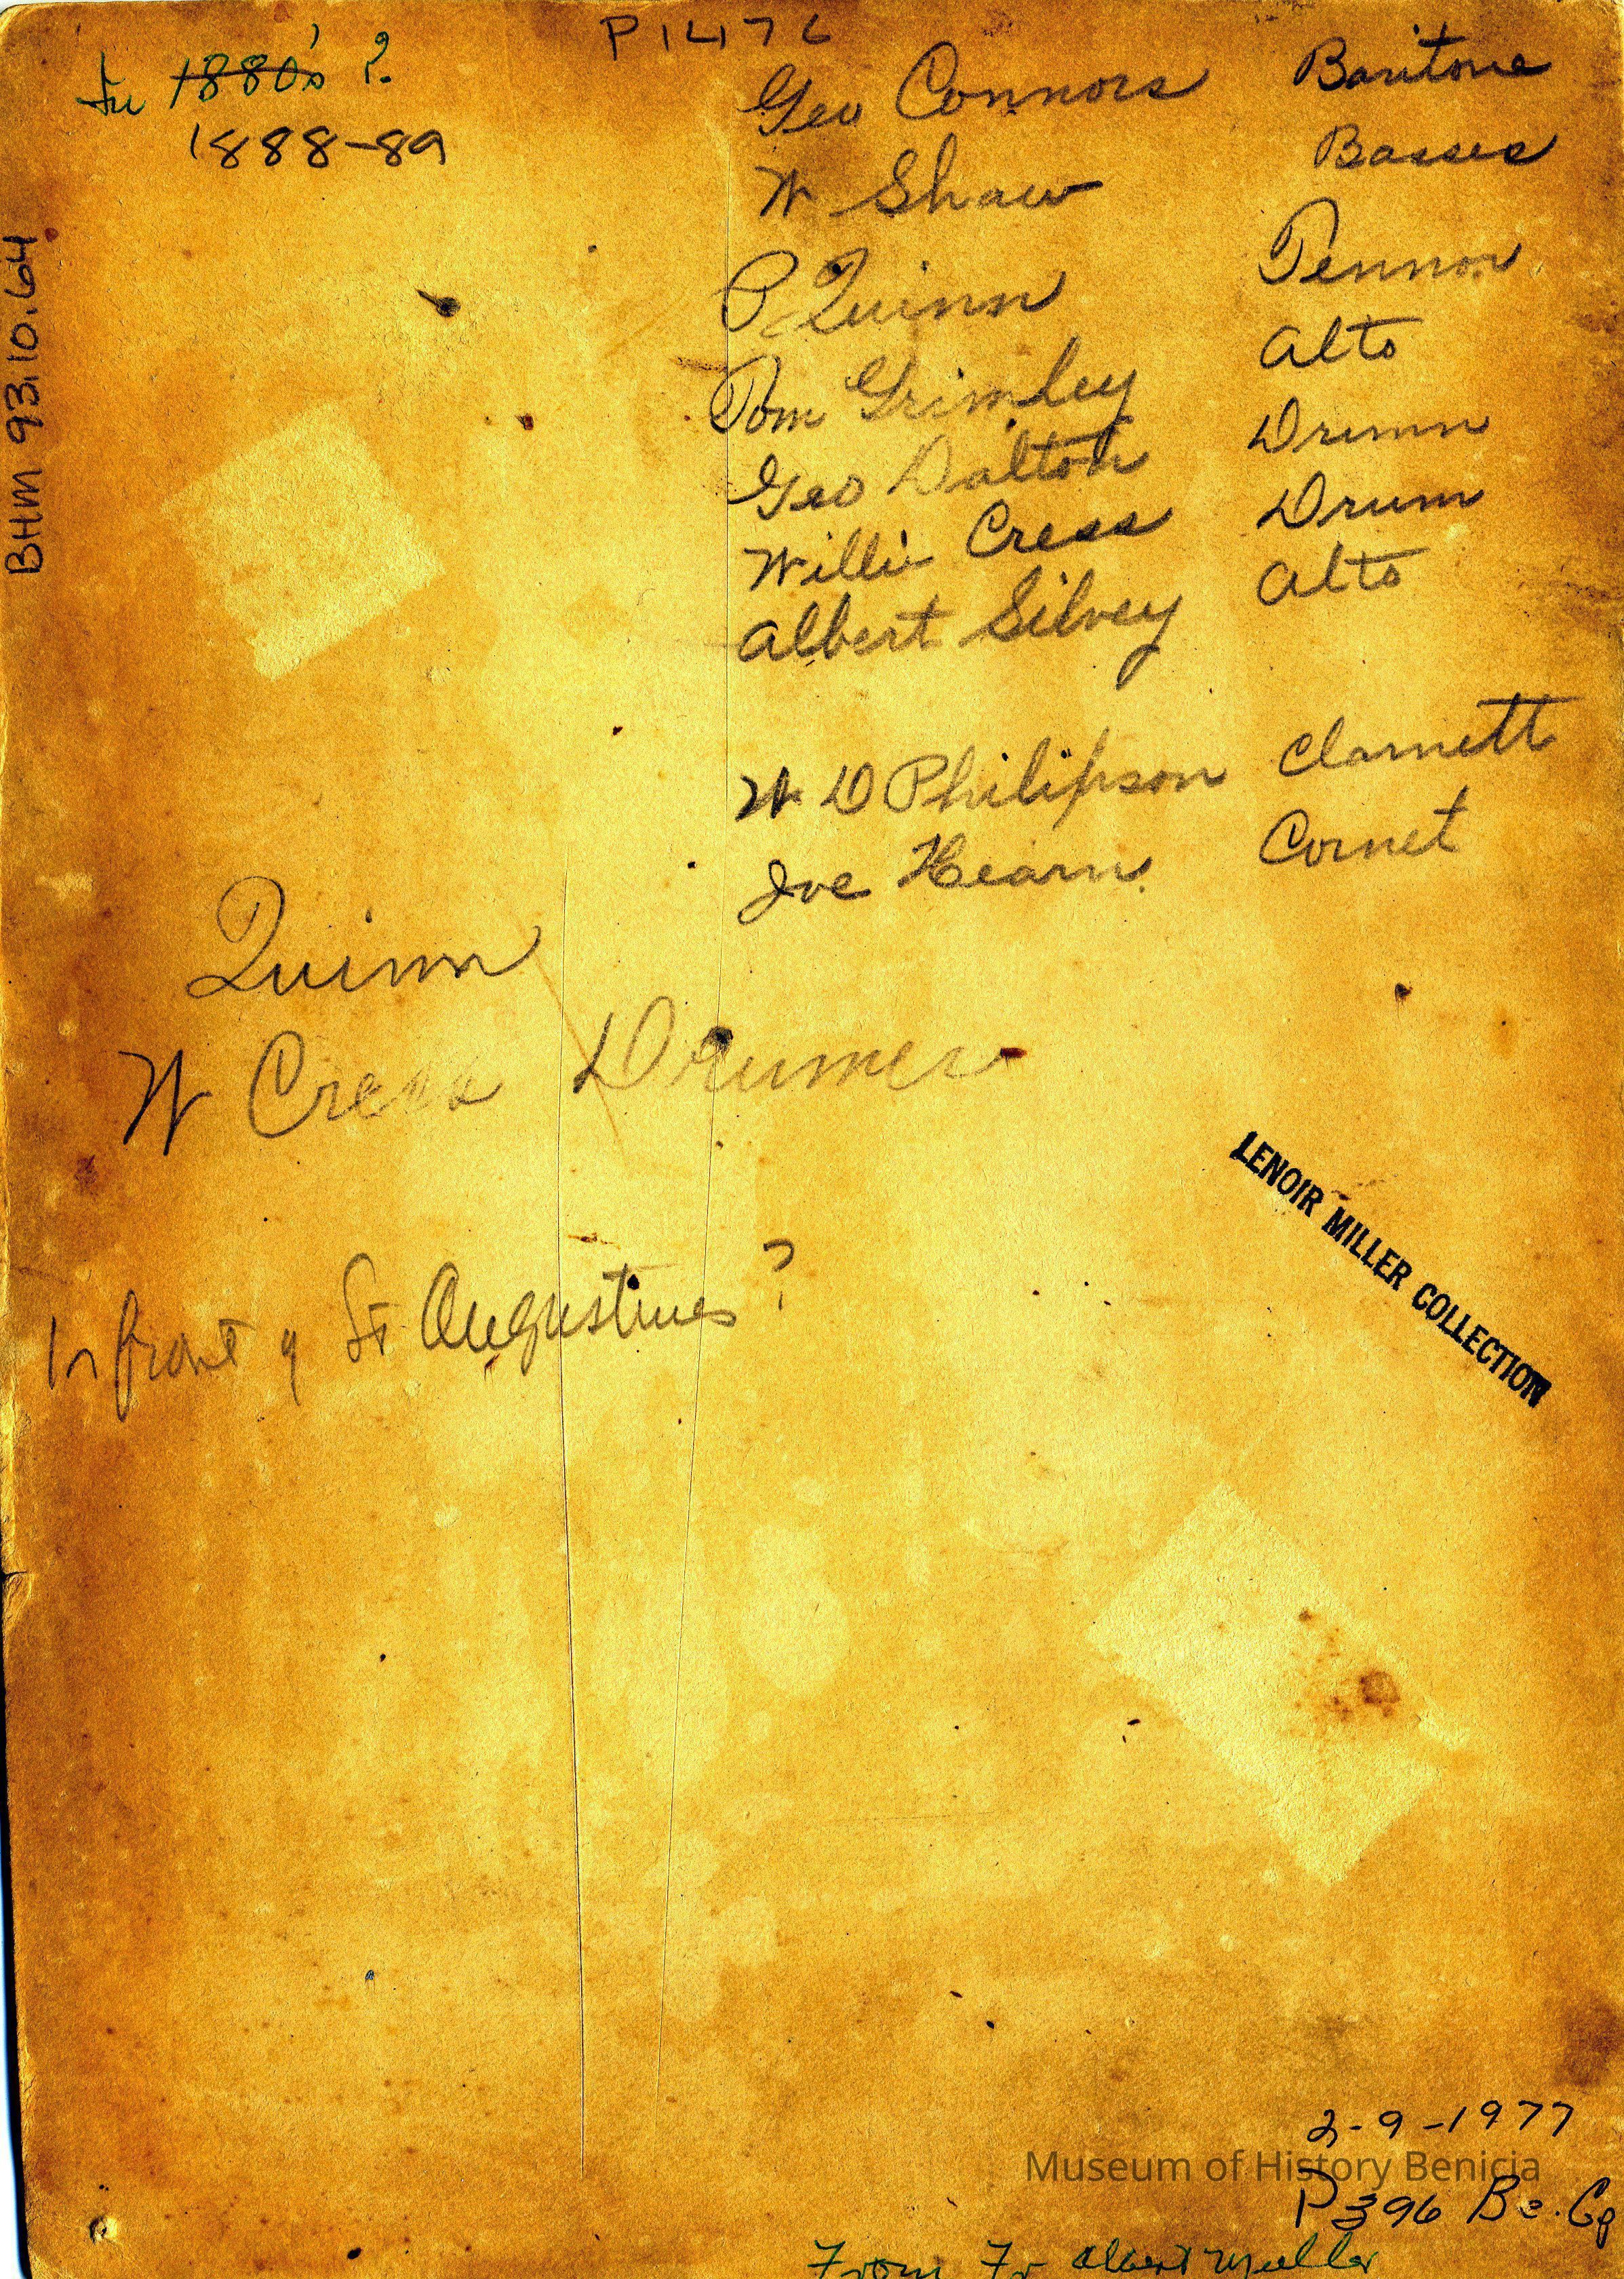 P1476
In 1880s' ?
1888-89
BHM 93.10.64
Geo Connors Baritone
W Shaw Basses
P Quinn Tennor
Tom Grimley Alto
Geo Dalton Drumn
Willie Cress Drum
Albert Silvey Alto
W D Philipson Clarnett
Joe Hearn Cornet
Quinn
W Cress Drumer
In front of St Augustines ?
LENOIR MILLER COLLECTION
2-9-1977
Museum of History Benicia
P396 Be.
From Fr Albert Mueller